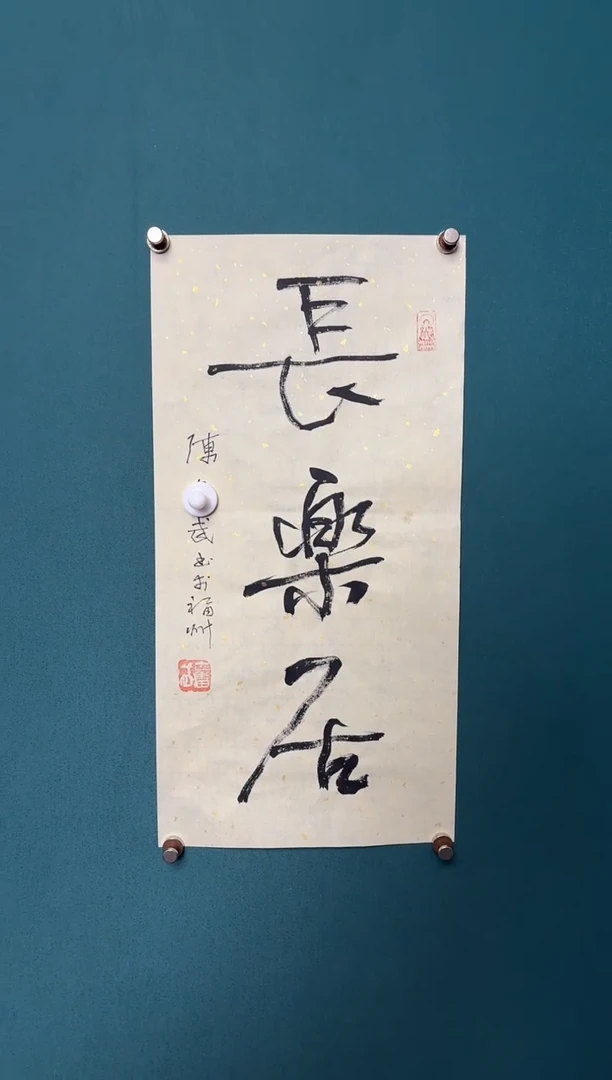 長樂居
陳 武书於福州